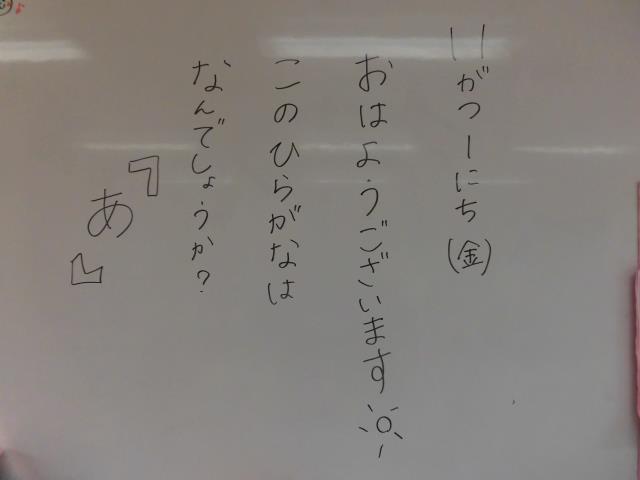 11がつ1にち(金)
おはようございます
このひらがなは
なんでしょうか?
『あ』